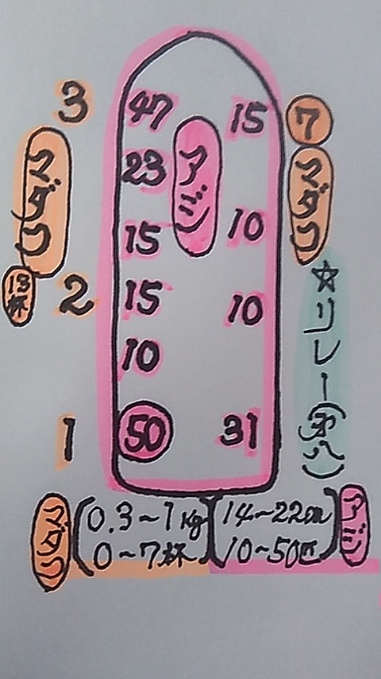 3
マダコ
13杯
2
1
47
23
15
15
10
50
アジ
15
10
10
31
7
マダコ
☆リレー(祢八)
マダコ(0.3~1kg
0~7杯)
(14~22cm
10~50匹)アジ